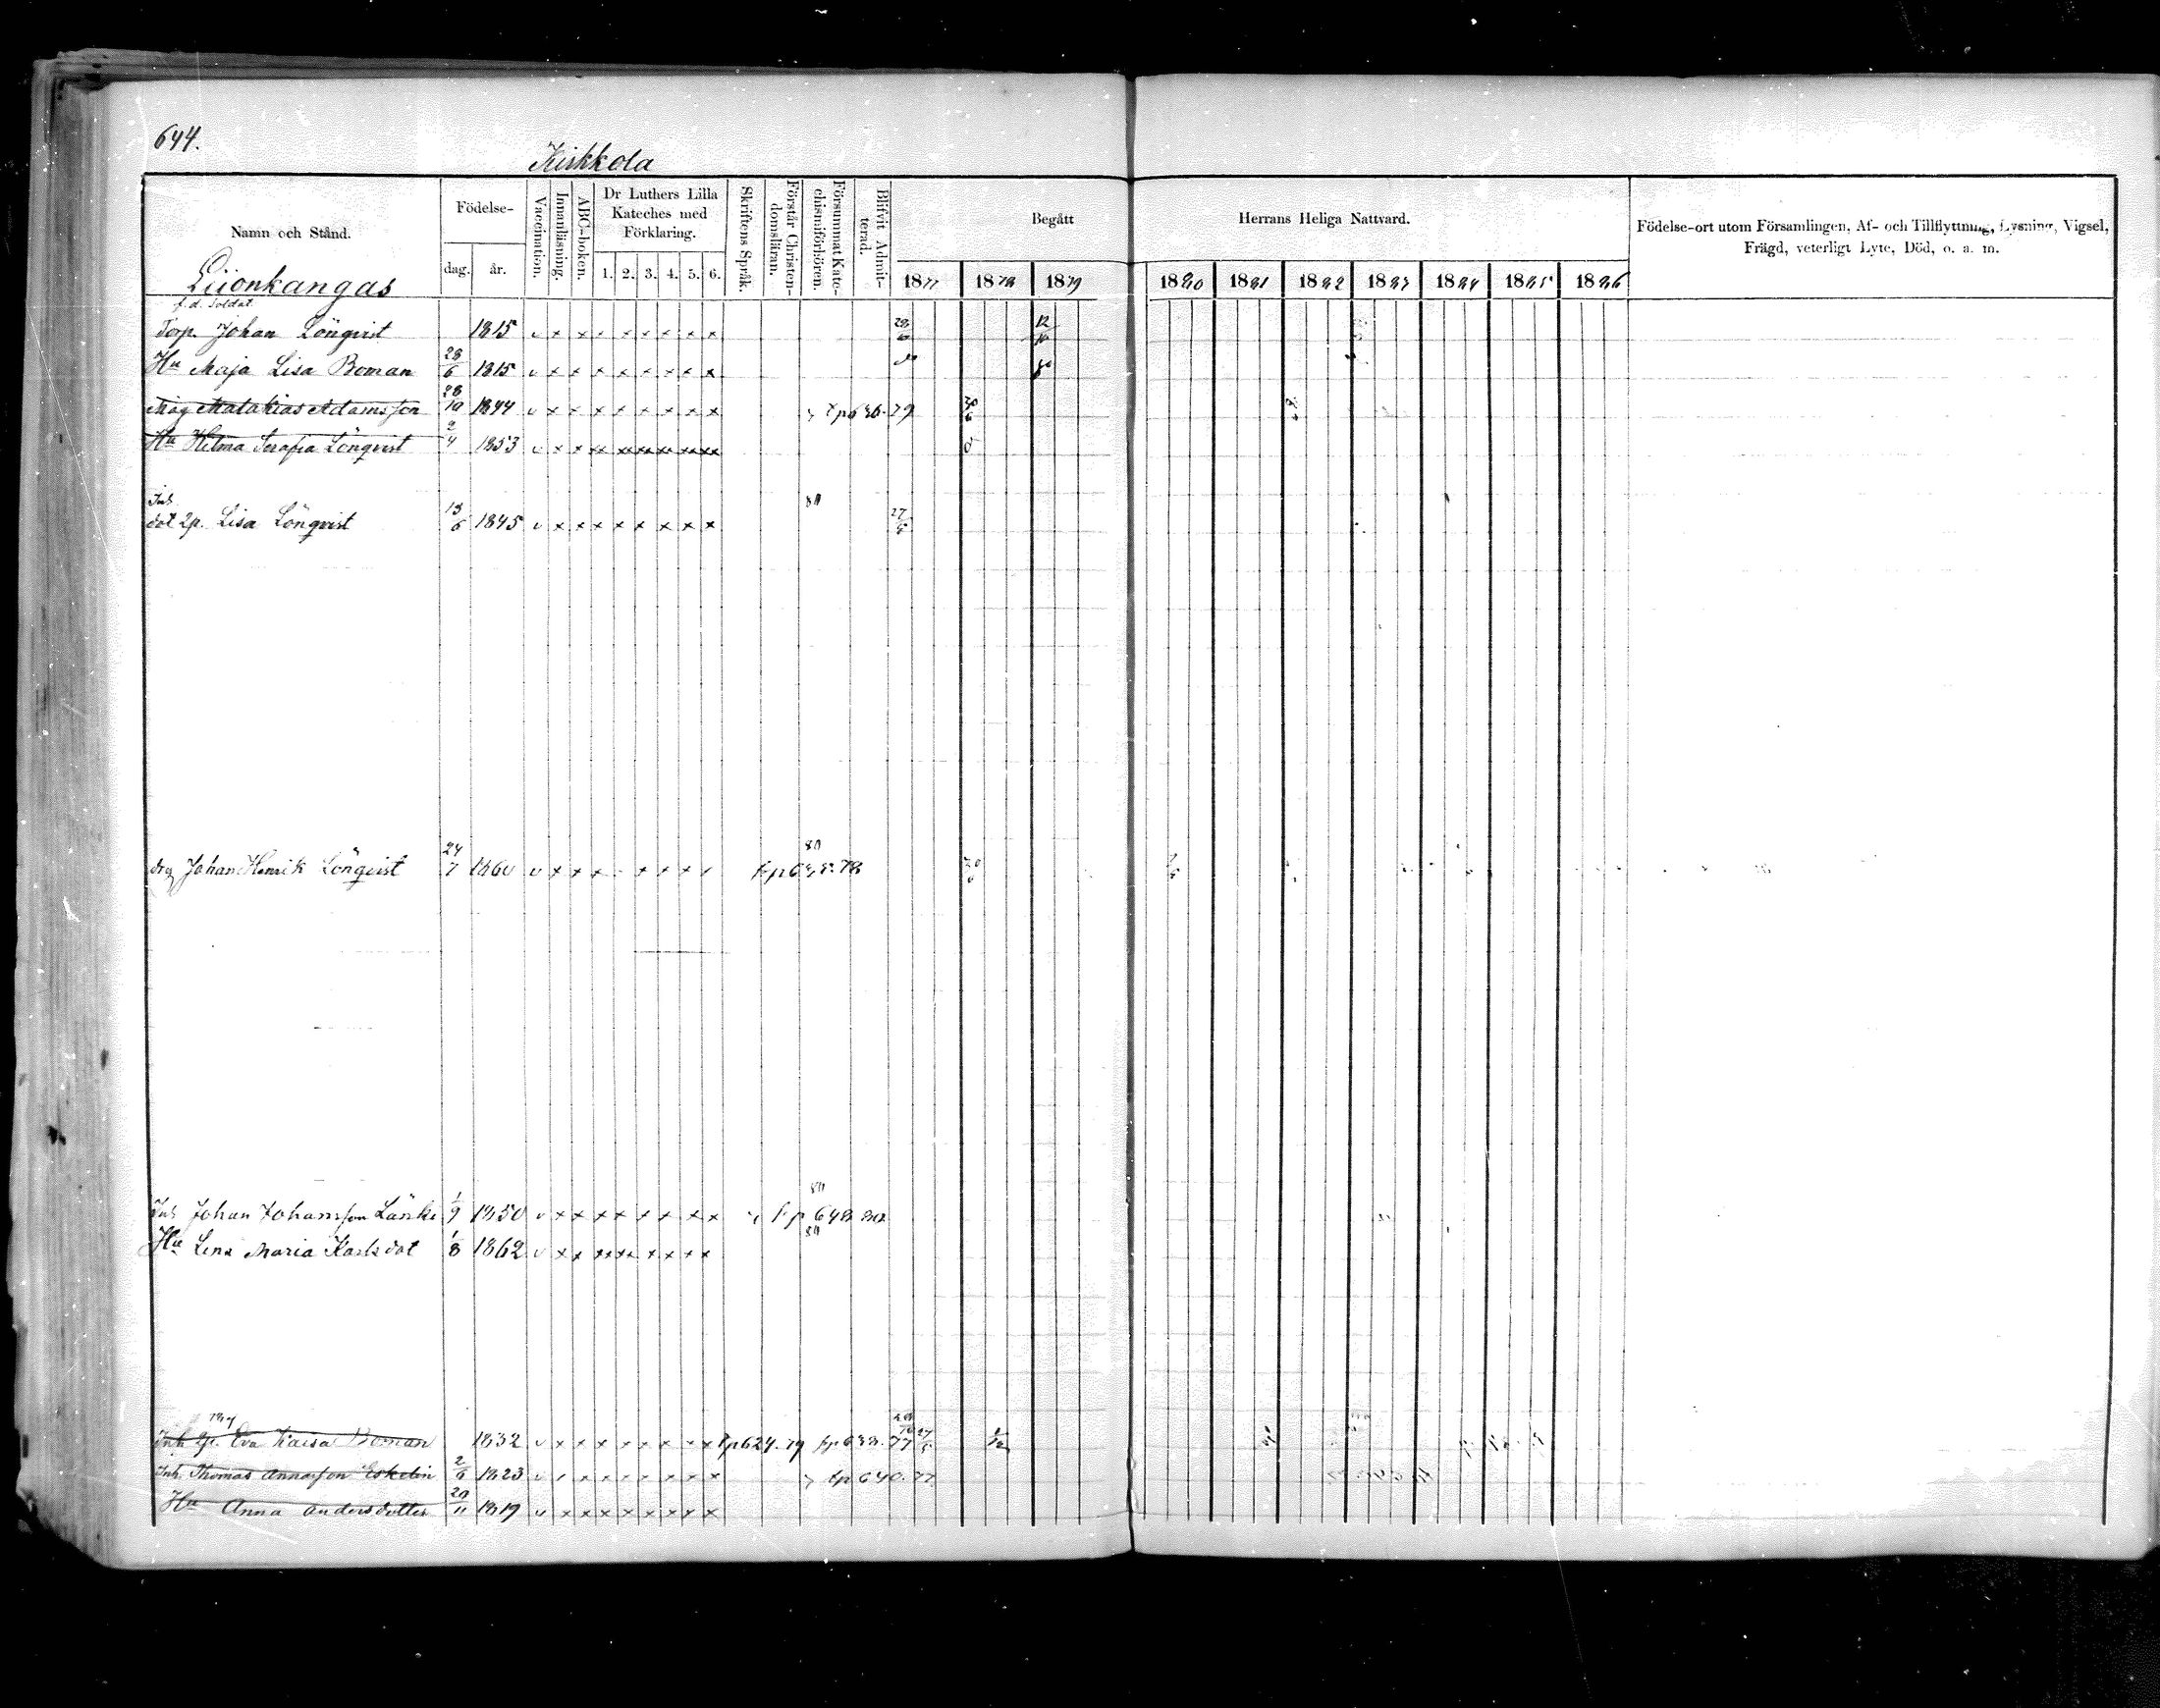 644.
Kirkkola
Namn och Stånd.
Födelse-
dag.
år.
Vaccination.
Innanläsning.
ABC-boken.
Dr Luthers Lilla
Kateches med
Förklaring.
1. 2. 3. 4. 5. 6.
Skriftens Språk.
Förstår Christen-
domsläran.
Försummat Kate-
chismiförhören.
Blifvit Admit-
terad.
Begått
Herrans Heliga Nattvard.
1877 1878 1879 1880 1881 1882 1883 1884 1885 1886
Födelse-ort utom Församlingen, Af- och Tillflyttning, Lysning, Vigsel,
Frägd, veterligt Lyte, Död, o. a. m.
Liionkangas
f.d. Soldat
Torp. Johan Lönqvist 1815 v x x x x x x x x 12/10
Hu Maja Lisa Boman 28/6 1815 v x x x x x x x x
Måg Malakias Adamsson 28/10 1844 v x x x x x x x x fp 636.79 30/6
Hu Helma Serafia Lönqvist 2/4 1853 v x x xx xx xx xx xx xx
Inh
dot 2p. Lisa Lönqvist 13/6 1845 v x x x x x x x x 80 27/5
drg Johan Henrik Lönqvist 24/7 1860 v x x x x x x x 80 30/6
Inh Johan Johansson 1/9 1850 v x x x x x x x x 80 fp 648 80
Hu Lena Maria Karlsdot 1/8 1862 v x x xx xx x x x x 80
Inh Eva Kaisa Boman 1832 v x x x x x x x x fp 624.79 fp 638.77
Inh. Thomas Annasson Eskelin 2/6 1823 fp 640.77
Hu Anna Andersdotter 20/11 1819 v x x x x x x x x